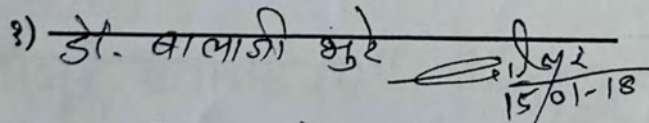 १) डॉ. बालाजी भुरे
15/01-18